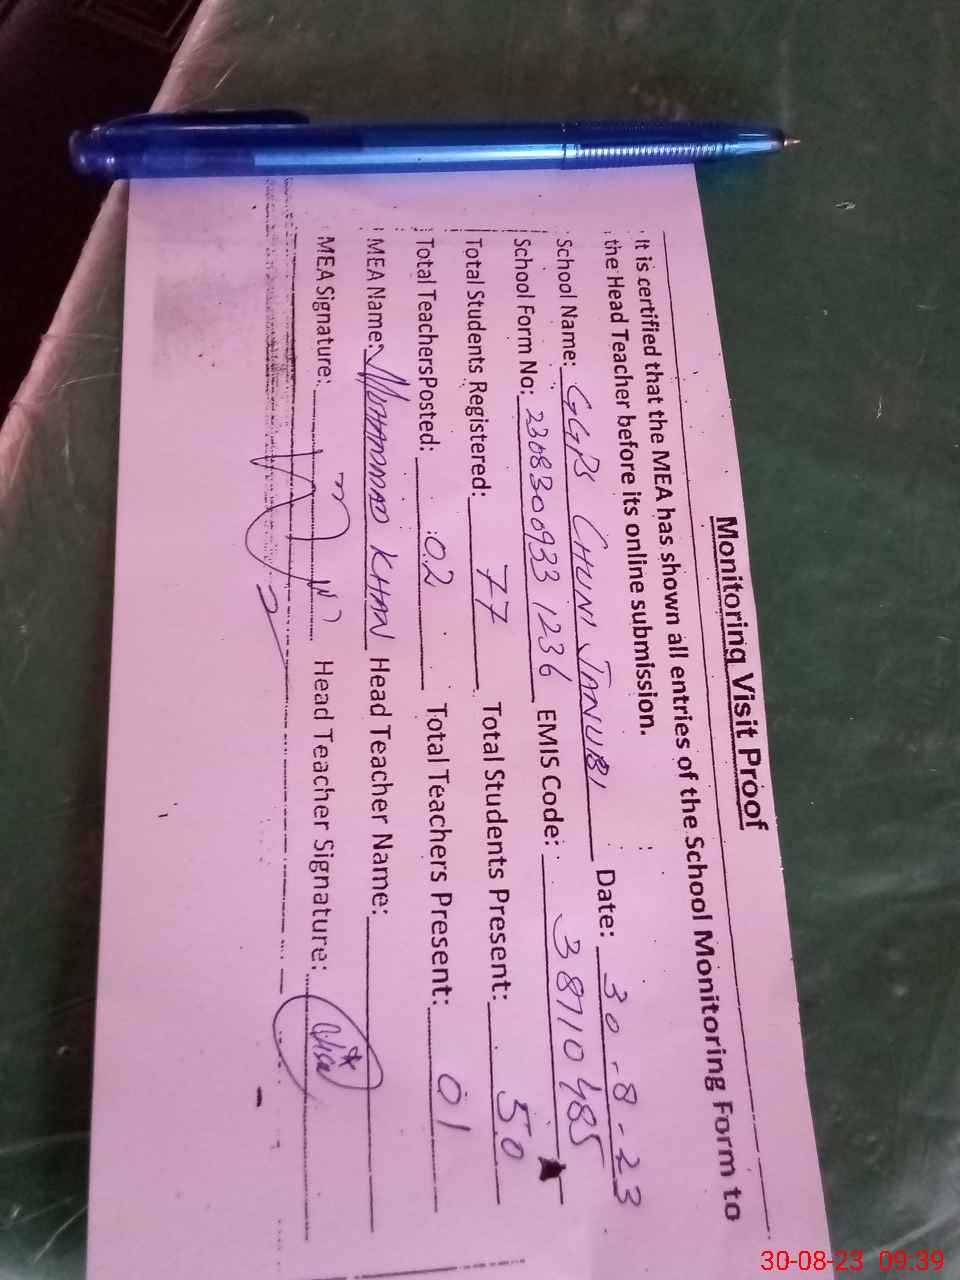 Monitoring Visit Proof
It is certified that the MEA has shown all entries of the School Monitoring Form to
the Head Teacher before its online submission.
School Name: GGPS CHUNI JANUBI Date: 30-8-23
School Form No: 2308300933 1236 EMIS Code: 38710485
Total Students Registered: 77 Total Students Present: 50
Total TeachersPosted: 02 Total Teachers Present: 01
MEA Name: MUHAMMAD KHAN Head Teacher Name:
MEA Signature: Head Teacher Signature:
30-08-23 09:39